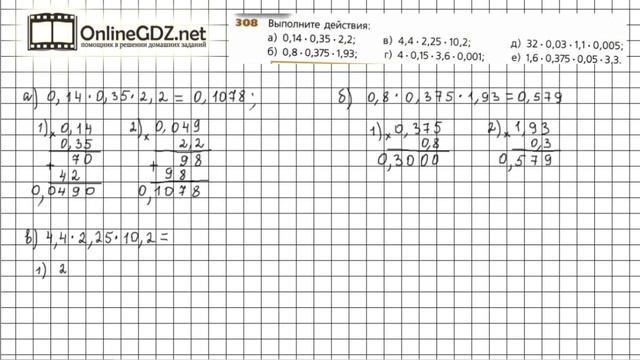 OnlineGDZ.net
помощник в решении домашних заданий
308 Выполните действия:
а) 0,14 · 0,35 · 2,2; в) 4,4 · 2,25 · 10,2; д) 32 · 0,03 · 1,1 · 0,005;
б) 0,8 · 0,375 · 1,93; г) 4 · 0,15 · 3,6 · 0,001; е) 1,6 · 0,375 · 0,05 · 3,3.
а) 0,14 · 0,35 · 2,2 = 0,1078; б) 0,8 · 0,375 · 1,93 = 0,579
1) × 0,14 2) × 0,049 1) × 0,375 2) × 1,93
0,35 2,2 0,8 0,3
+ 70 + 98 0,3000 0,579
42 98
0,0490 0,1078
в) 4,4 · 2,25 · 10,2 =
1) 2